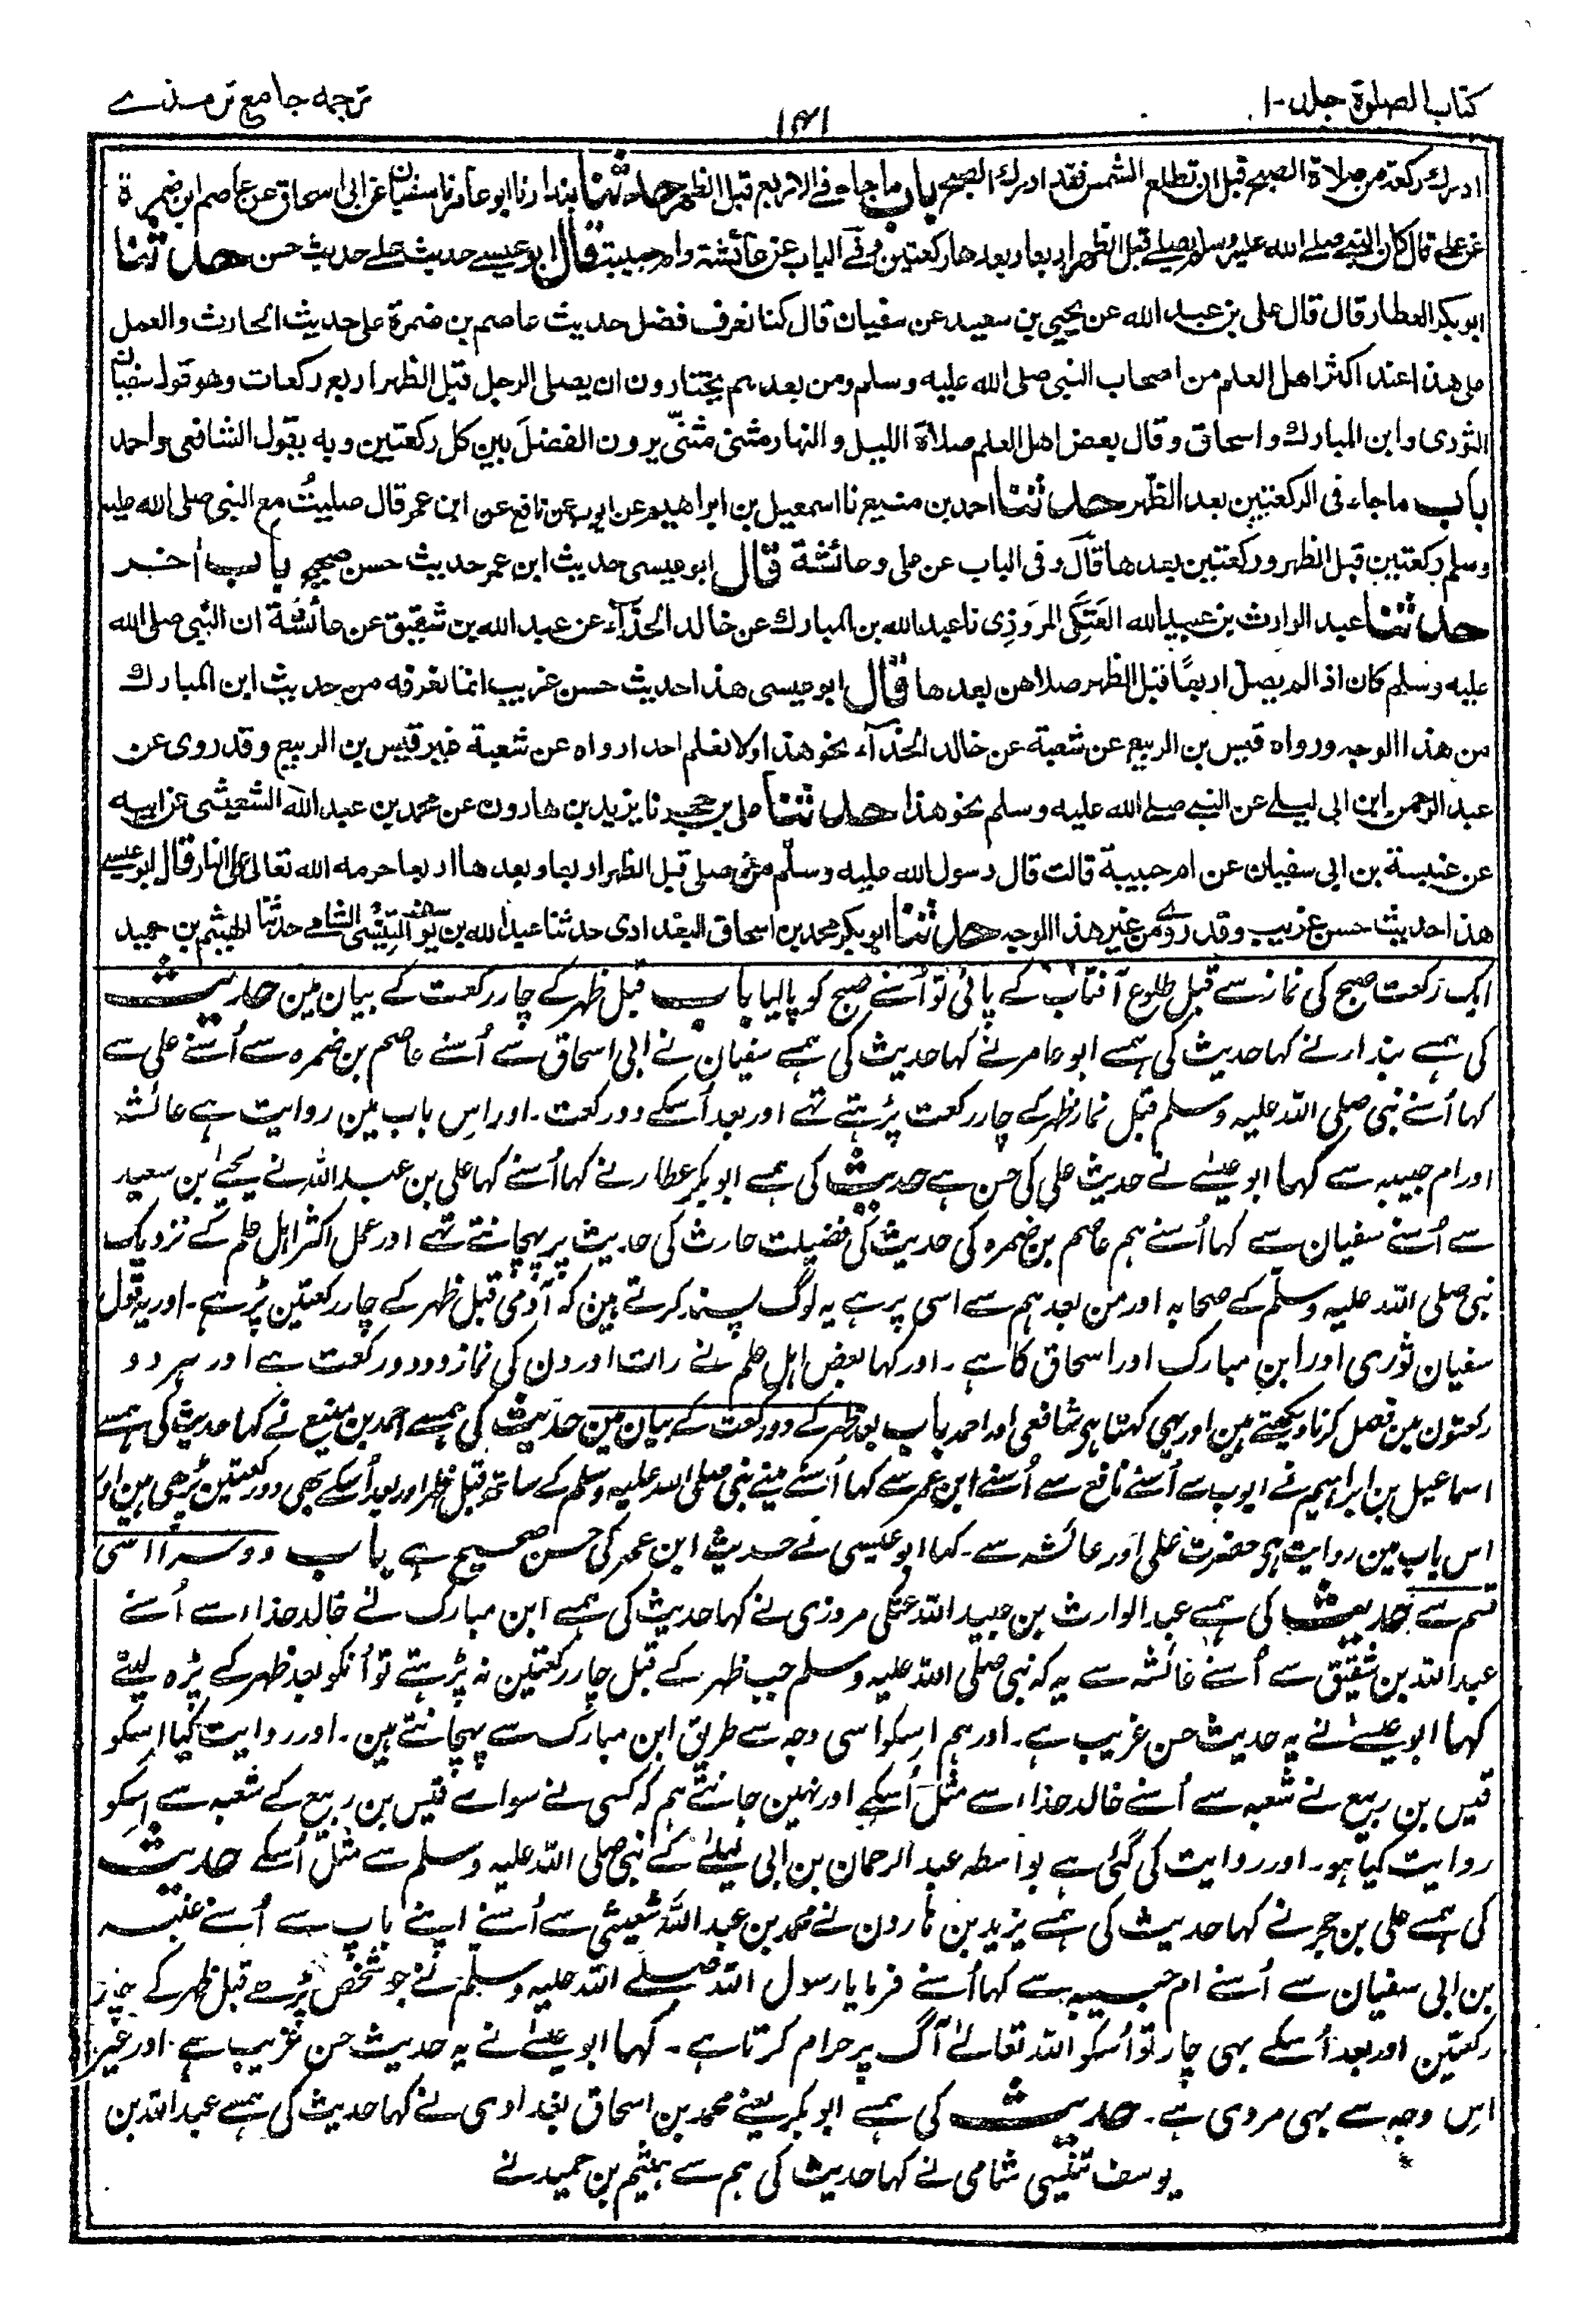 کتاب الصلوٰۃ جلد-۱
۱۴۱
ترجمہ جامع ترمذے
ادرك ركعة من صلاة الصبح قبل ان تطلع الشمس فقد ادرك الصبح باب ما جاء في الاربع قبل الظهر حدثنا بندار نا ابو عامر نا سفيان عن ابي اسحاق عن عاصم ابن ضمرة
عن علي قال كان النبي صلے الله عليه وسلم يصلے قبل الظهر اربعا وبعدها ركعتين وفے الباب عن عائشة وام حبيبة قال ابو عيسے حديث علے حديث حسن حدثنا
ابو بكر العطار قال قال علي بن عبد الله عن يحيى بن سعيد عن سفيان قال كنا نعرف فضل حديث عاصم بن ضمرة على حديث الحارث والعمل
على هذا عند اكثر اهل العلم من اصحاب النبي صلى الله عليه وسلم ومن بعدهم يختارون ان يصلي الرجل قبل الظهر اربع ركعات وهو قول سفيان
الثوري وابن المبارك واسحاق وقال بعض اهل العلم صلاة الليل والنهار مثنى مثنى يرون الفصل بين كل ركعتين وبه يقول الشافعي واحمد
باب ما جاء في الركعتين بعد الظهر حدثنا احمد بن منيع نا اسمعيل بن ابراهيم عن ايوب عن نافع عن ابن عمر قال صليت مع النبي صلى الله عليه
وسلم ركعتين قبل الظهر وركعتين بعدها قال وفي الباب عن علي وعائشة قال ابو عيسى حديث ابن عمر حديث حسن صحيح باب اخر
حدثنا عبد الوارث بن عبيد الله العتكي المروزي نا عبد الله بن المبارك عن خالد الحذآء عن عبد الله بن شقيق عن عائشة ان النبي صلى الله
عليه وسلم كان اذا لم يصل اربعًا قبل الظهر صلاهن بعدها قال ابو عيسى هذا حديث حسن غريب انما نعرفه من حديث ابن المبارك
من هذا الوجه ورواه قيس بن الربيع عن شعبة عن خالد الحذآء نحو هذا ولا نعلم احدا رواه عن شعبة غير قيس بن الربيع وقد روى عن
عبد الرحمن ابن ابي ليلے عن النبي صلے الله عليه وسلم نحو هذا حدثنا علي بن حجر نا يزيد بن هارون عن محمد بن عبد الله الشعيثي عن ابيه
عن عنبسة بن ابي سفيان عن ام حبيبة قالت قال رسول الله صليه وسلم من صلى قبل الظهر اربعا وبعدها اربعا حرمه الله تعالى على النار قال ابو عيسے
هذا حديث حسن غريب وقد روي من غير هذا الوجه حدثنا ابو بكر محمد بن اسحاق البغدادي حدثنا عبد الله بن يوسف التنيسي الشامے حدثنا الهيثم بن حميد
ایک رکعت صبح کی نماز سے قبل طلوع آفتاب کے پائی تو اُسنے صبح کو پالیا باب قبل ظہر کے چار رکعت کے بیان مین حدیث
کی ہمسے بندار نے کہا حدیث کی ہمسے ابو عامر نے کہا حدیث کی ہمسے سفیان نے ابی اسحاق سے اُسنے عاصم بن ضمرہ سے اُسنے علی سے
کہا اُسنے نبی صلی اللہ علیہ وسلم قبل نماز ظہر کے چار رکعت پڑہتے تہے اور بعد اُسکے دو رکعت۔ اور اِس باب مین روایت ہے عائشہ
اور ام حبیبہ سے کہا ابو عیسےٰ نے حدیث علی کی حسن ہے حدیث کی ہمسے ابو بکر عطار نے کہا اُسنے کہا علی بن عبد اللہ نے یحیےٰ بن سعید
سے اُسنے سفیان سے کہا اُسنے ہم عاصم بن ضمرہ کی حدیث کی فضیلت حارث کی حدیث پر پہچانتے تہے اور عمل اکثر اہل علم کے نزدیک
نبی صلی اللہ علیہ وسلم کے صحابہ اور من بعدہم سے اسی پر ہے یہ لوگ پسند کرتے ہین کہ آدمی قبل ظہر کے چار رکعتین پڑہے۔ اور یہ قول
سفیان ثوری اور ابن مبارک اور اسحاق کا ہے۔ اور کہا بعض اہل علم نے رات اور دن کی نماز دو دو رکعت ہے اور ہر دو
رکعتون مین فصل کرنا دیکھتے ہین اور یہی کہتا ہی شافعی اور احمد باب بعد ظہر کے دو رکعت کے بیان مین حدیث کی ہمسے احمد بن منیع نے کہا حدیث کی ہمسے
اسماعیل بن ابراہیم نے ایوب سے اُسنے نافع سے اُسنے ابن عمر سے کہا اُسنے مینے نبی صلی اللہ علیہ وسلم کے ساتھ قبل ظہر اور بعد اُسکے بھی دو رکعتین پڑھی ہین اور
اس باب مین روایت ہی حضرت علی اور عائشہ سے۔ کہا ابو عیسی نے حدیث ابن عمر کی حسن صحیح ہے باب دوسرا اسی
قسم سے حدیث کی ہمسے عبد الوارث بن عبید اللہ عتکی مروزی نے کہا حدیث کی ہمسے ابن مبارک نے خالد حذاء سے اُسنے
عبد اللہ بن شقیق سے اُسنے عائشہ سے یہ کہ نبی صلی اللہ علیہ وسلم جب ظہر کے قبل چار رکعتین نہ پڑہتے تو اُنکو بعد ظہر کے پڑہ لیتے
کہا ابو عیسےٰ نے یہ حدیث حسن غریب ہے۔ اور ہم اِسکو اسی وجہ سے طریق ابن مبارک سے پہچانتے ہین۔ اور روایت کیا اِسکو
قیس بن ربیع نے شعبہ سے اُسنے خالد حذاء سے مثل اُسکے اور نہین جانتے ہم کہ کسی نے سواے قیس بن ربیع کے شعبہ سے اِسکو
روایت کیا ہو۔ اور روایت کی گئی ہے بواسطہ عبد الرحمان بن ابی لیلےٰ کے نبی صلی اللہ علیہ وسلم سے مثل اُسکے حدیث
کی ہمسے علی بن حجر نے کہا حدیث کی ہمسے یزید بن ہارون نے محمد بن عبد اللہ شعیثی سے اُسنے اپنے باپ سے اُسنے عنبسہ
بن ابی سفیان سے اُسنے ام حبیبہ سے کہا اُسنے فرمایا رسول اللہ صلے اللہ علیہ وسلم نے جو شخص پڑھے قبل ظہر کے چار
رکعتین اور بعد اُسکے بہی چار تو اُسکو اللہ تعالےٰ آگ پر حرام کرتا ہے۔ کہا ابو عیسےٰ نے یہ حدیث حسن غریب ہے اور غیر
اِس وجہ سے بہی مروی ہے۔ حدیث کی ہمسے ابو بکر یعنے محمد بن اسحاق بغدادی نے کہا حدیث کی ہمسے عبد اللہ بن
یوسف تنیسی شامی نے کہا حدیث کی ہم سے ہیثم بن حمید نے